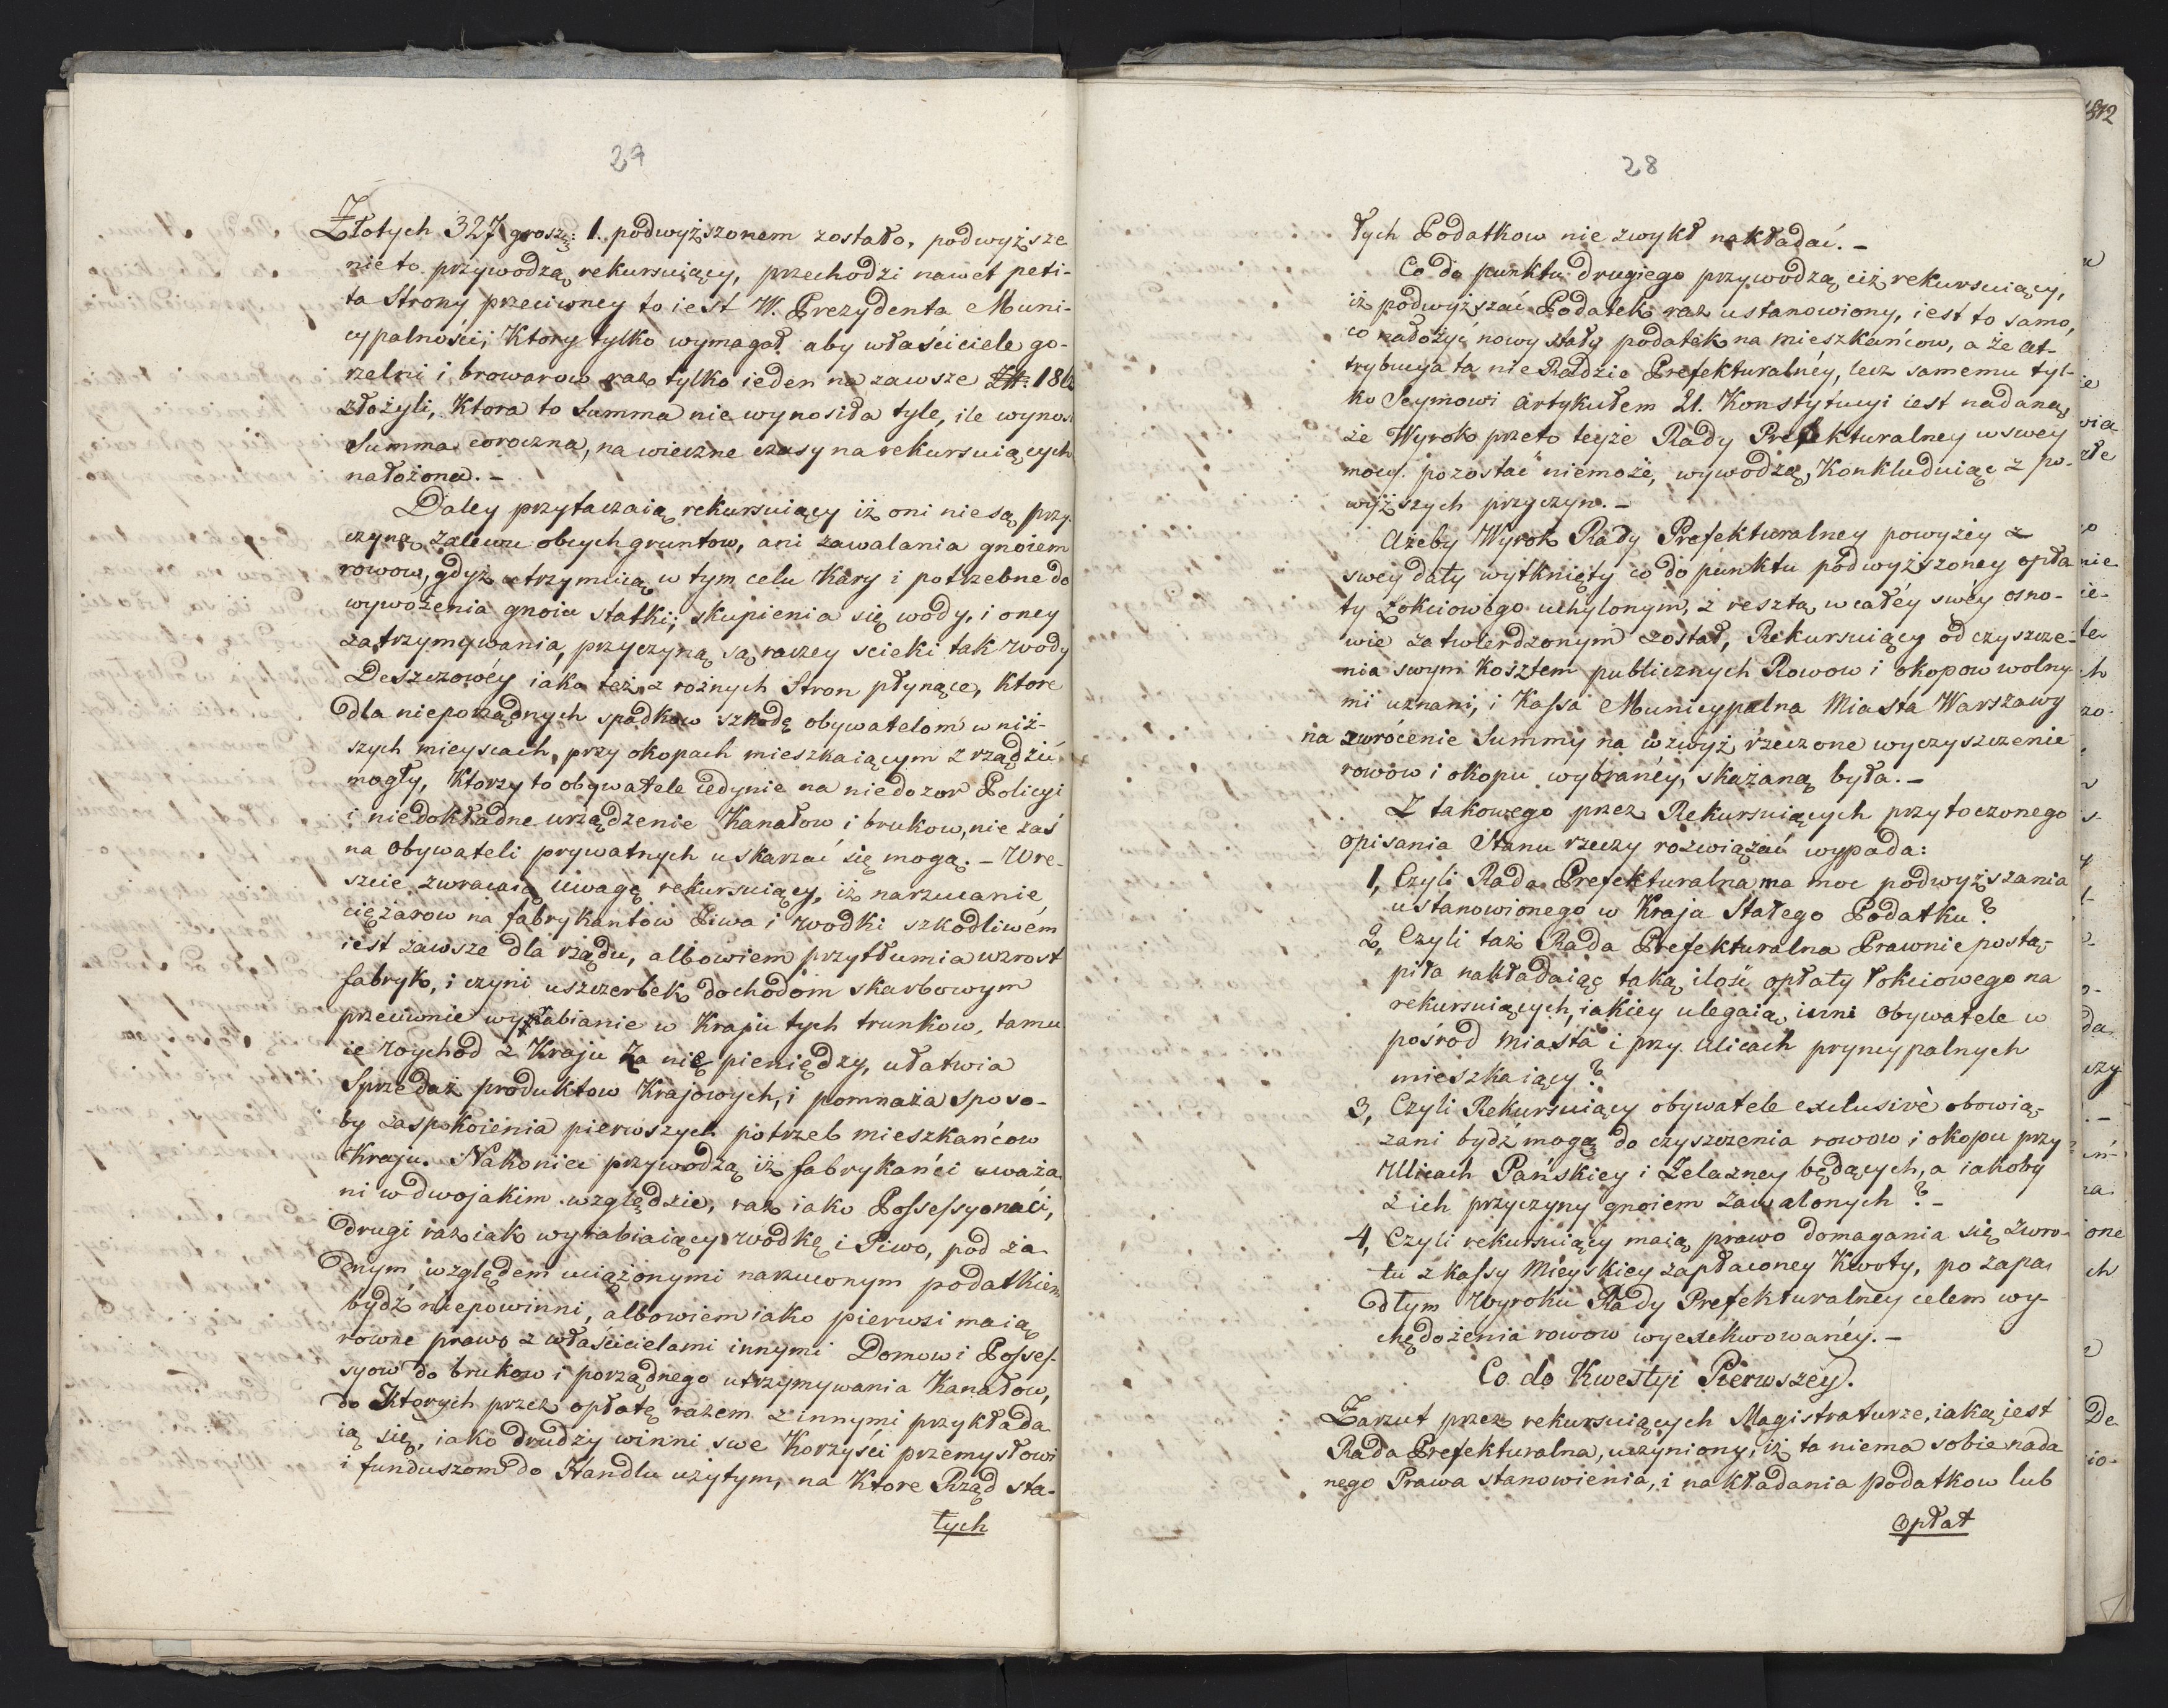 27
Złotych 327 groszy: 1. podwyższonem zostało, podwyższe
nie to przywodzą rekursuiący, przechodzi nawet peti-
ta Strony przeciwney to iest W. Prezydenta Muni-
cypalności; Ktory tylko wymagał aby właściciele go-
rzelni i browarow raz tylko ieden na zawsze Zł: 186
złożyli, Ktora to Summa nie wynosiła tyle, ile wynosi
Summa coroczna, na wieczne czasy na rekursuiących
nałożona. –
Daley przytaczaią rekursuiący iż oni nie są przy-
czyną zalewu obcych gruntow, ani zawalania gnoiem
rowow, gdyż utrzymuią w tym celu Kary i potrzebne do
wywożenia gnoiu statki; skupienia się wody, i oney
zatrzymywania, przyczyną są raczey scieki tak wody
Deszczowéy iako też z rożnych Stron płynące, Ktore
dla nieporządnych spadkow szkodę obywatelom w niż-
szych mieyscach, przy okopach mieszkaiącym zrządzić
mogły, Ktorzy to obywatele iedynie na niedozor Policyi
i niedokładne urządzenie Kanałow i brukow, nie zaś
na Obywateli prywatnych uskarzać się mogą. – Wre-
szcie zwracaią Uwagę rekursuiący, iż narzucanie
ciężarow na fabrykantow Piwa i wodki szkodliwem
iest zawsze dla rządu, albowiem przytłumia wzrost
fabryk, i czyni uszczerbek dochodom skarbowym
przeciwnie wyrabianie w Kraju tych trunkow, tamu
ie wychod z Kraju za nię pieniędzy, ułatwia
Sprzedaż produktow Krajowych, i pomnaża sposo-
by zaspokoienia pierwszych potrzeb mieszkańcow
Kraju. Nakoniec przywodzą iż fabrykańci uważa
ni w dwojakim względzie, raz iako Possessyonaci,
drugi raz iak wyrabiaiący wodkę i Piwo, pod ża
dnym względem uciążonymi narzuconym podatkiem
bydź niepowinni, albowiem iako pierwsi maią
rowne prawo z właścicielami innymi Domow i Posses-
syow do brukow i porządnego utrzymywania Kanałow,
do Ktorych przez opłatę razem z innymi przykłada
ią się, iako drudzy winni swe Korzyści przemysłowi
i funduszom do Handlu użytym, na Ktore Rząd sta-
łych
28
łych Podatkow nie zwykł nakładać. –
Co do punktu drugiego przywodzą ciż rekursuiący,
iż podwyższać Podatek raz ustanowiony, iest to samo,
co nałożyć nowy stały podatek na mieszkańcow, a że at-
trybucya ta nie Radzie Prefekturalnéy, lecz samemu tyl-
ko Seymowi artykułem 21. Konstytucyi iest nadaną,
że Wyrok przeto teyże Rady Prefekturalney w swey
mocy pozostać niemoże, wywodzą, Konkluduiąc z po-
wyższych przyczyn. –
Ażeby Wyrok Rady Prefekturalney powyżey z
swey daty wytknięty co do punktu podwyższoney opła
ty Łokciowego uchylonym, z resztą w całéy swéy osno-
wie zatwierdzonym został, Rekursuiący od czyszcze-
nia swym Kosztem publicznych Rowow i okopow wolny
mi uznani, i Kassa Municypalna Miasta Warszawy
na zwrócenie Summy na wzwyż rzeczone wyczyszczenie
rowow i okopu wybranéy, skazaną była. –
Z takowego przez Rekursuiących przytoczonego
opisania Stanu rzeczy rozwiązać wypada:
1, Czyli Rada Prefekturalna ma moc podwyższania
ustanowionego w Kraju Stałego Podatku?
2, Czyli taż Rada Prefekturalna Prawnie postą-
piła nakładaiąc taką ilość opłaty Łokciowego na
rekursuiących, iakiey ulegaią inni Obywatele w
pośród Miasta i przy Ulicach pryncypalnych
mieszkaiący?
3, Czyli Rekursuiący obywatele exclusivè obowią-
zani bydź mogą do czyszczenia rowow i okopu przy
Ulicach Pańskiey i Zelazney będących, a iakoby
z ich przyczyny gnoiem zawalonych? –
4, Czyli rekursuiący maią prawo domagania się zwro-
tu z kassy Mieyskiey zapłaconey Kwoty, po zapa-
dłym Wyroku Rady Prefekturalney celem wy-
chędożenia rowow wyexekwowanéy. –
Co do Kwestyi Pierwszéy.
Zarzut przez rekursuiących Magistraturze, iaką iest
Rada Prefekturalna, uczyniony, iż ta niema sobie nada
nego Prawa stanowienia, i nakładania podatkow lub
Opłat